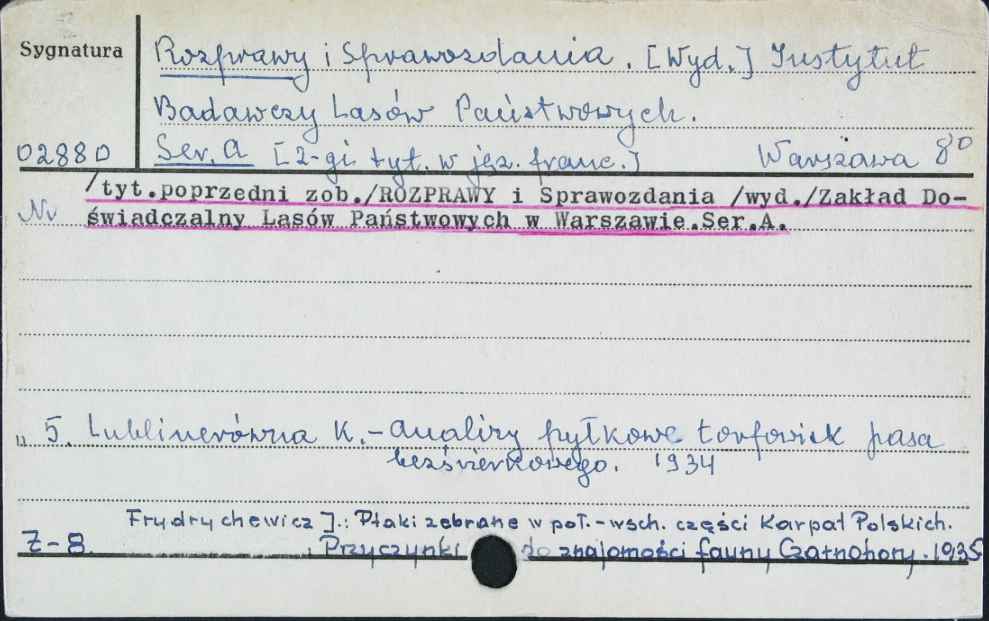 Sygnatura
Rozprawy i Sprawozdania. [Wyd.] Instytut
Badawczy Lasów Państwowych.
02880 Ser. A [2-gi tyt. w jęz. franc.] Warszawa 8º
/tyt.poprzedni zob./ROZPRAWY i Sprawozdania /wyd./Zakład Do-
Nr świadczalny Lasów Państwowych w Warszawie.Ser.A.
" 5. Lublinerówna K.- Analizy pyłkowe torfowisk pasa
bezświerkowego. 1934
Frydrychewicz J.: Ptaki zebrane w poł.-wsch. części Karpat Polskich.
Z-8. Przyczynki do znajomości fauny Czarnohory. 1935